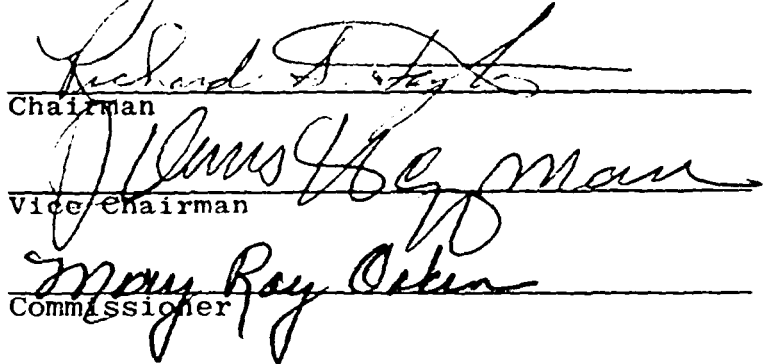 Richard D. Taylor
Chairman
J Dennis
Vice Chairman
Mary Ray Oaken
Commissioner